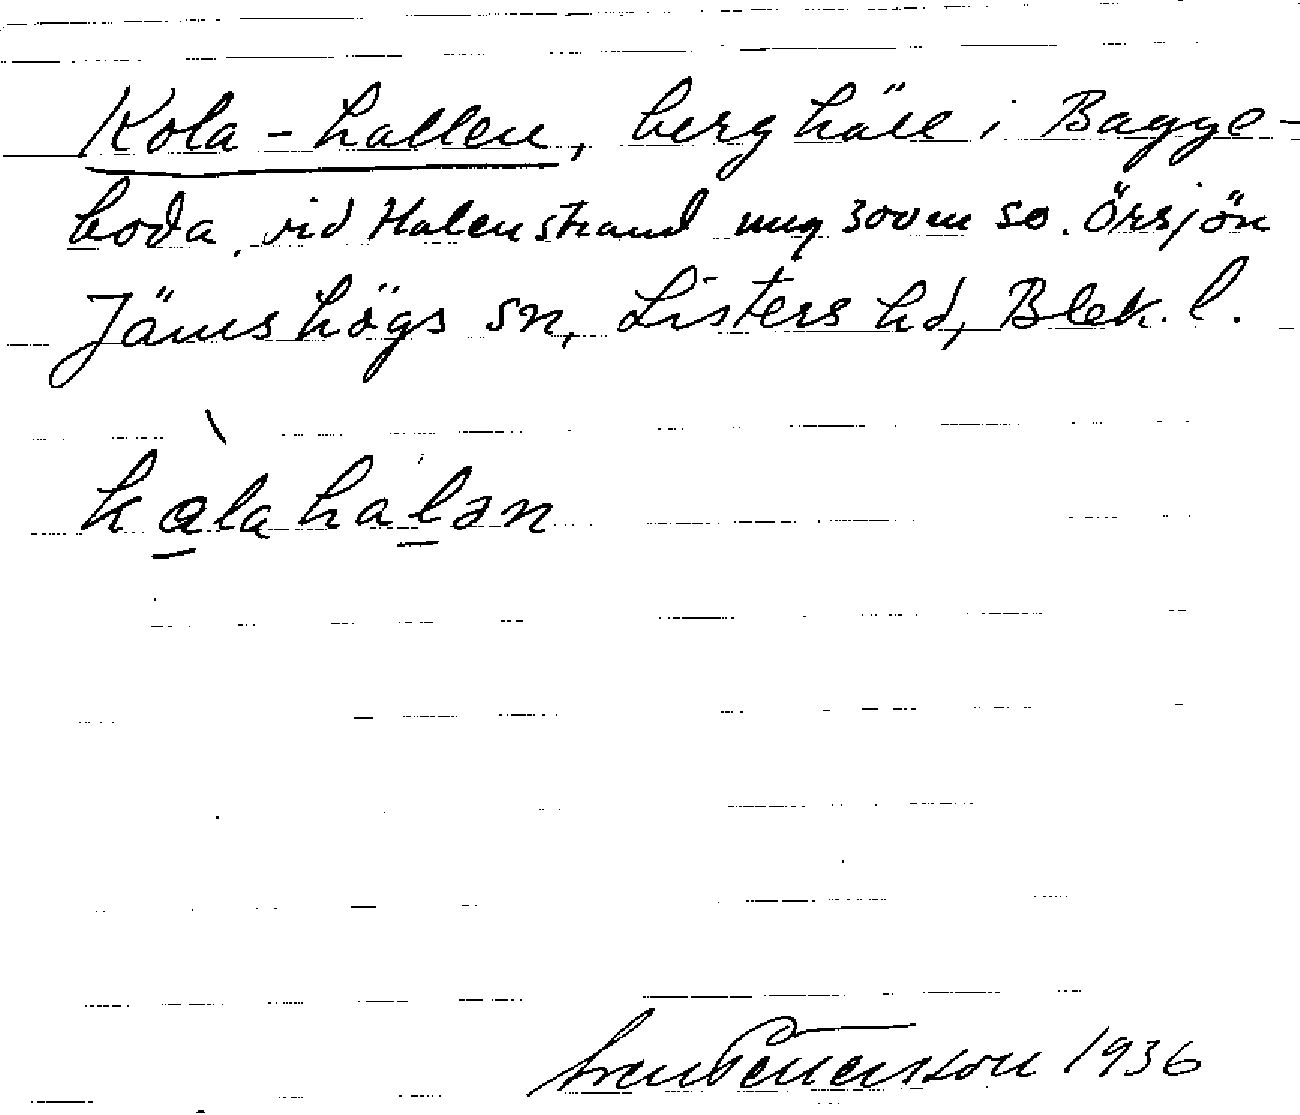 Kola-hallen, berghäll i Bagge-
boda, vid Halens strand 300 m so. Örsjön
Jämshögs sn, Listers hd, Blek. l.
kɑ̀lahalən
Sven Pettersson 1936